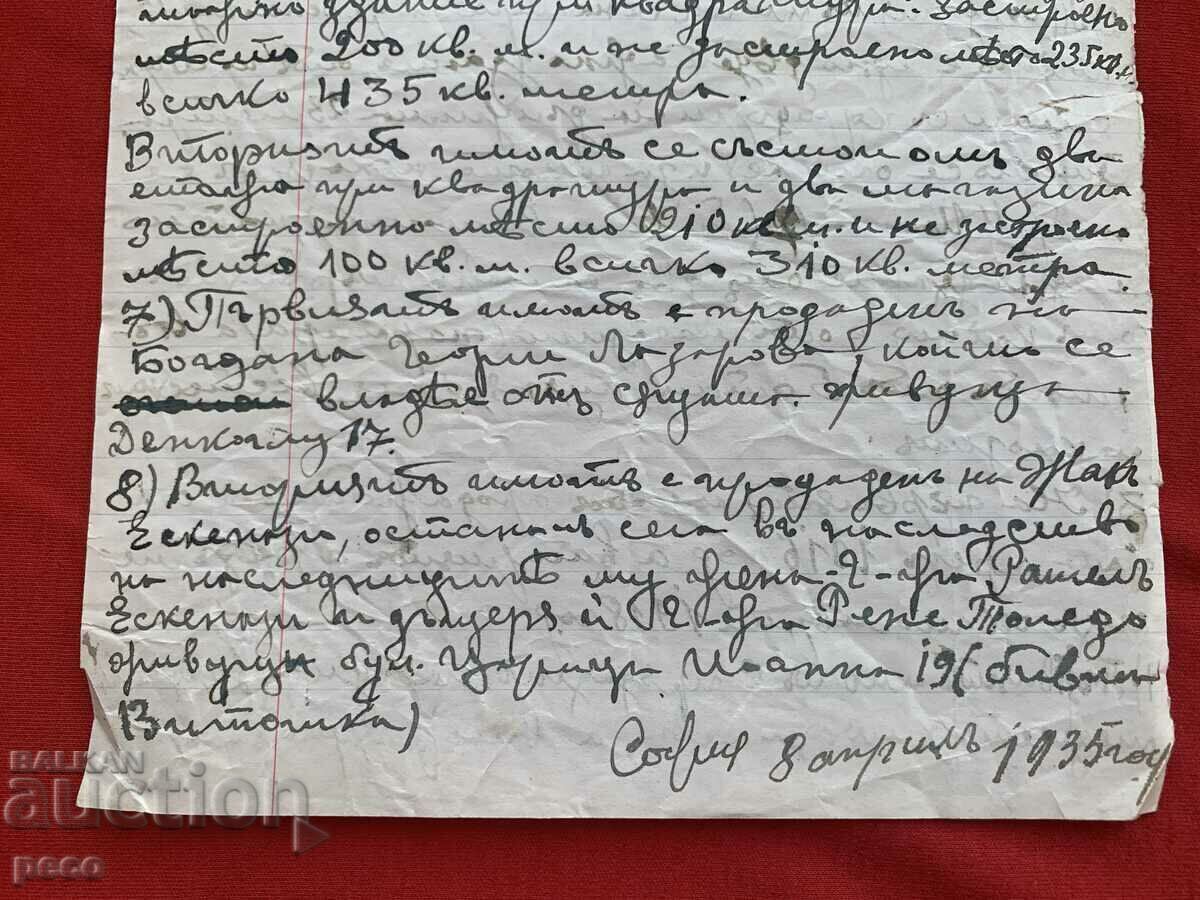 здание при квадратура. Застроено
мѣсто 200 кв. м. и не застроено мѣсто 235 кв. м.
всичко 435 кв. метра.
Вториятъ имотъ се състои отъ два
етажа при квадратура и два магазина
застроенно мѣсто 210 кв. м. и не застроено
мѣсто 100 кв. м. всичко 310 кв. метра.
7) Първиятъ имотъ е продаденъ на
Богдана Георги Лазарова, който се
владѣе отъ същата. живуща
Денкоглу 17.
8) Вториятъ имотъ е продаденъ на Жакъ
Ескенази, останалъ сега въ наследство
на наследницитѣ му жена-Г-жа Рашелъ
Ескенази и дъщеря ѝ Г-жа Рене Толедо
живущи бул. Царица Иоанна 19 (бивша
Витошка)
София 8 априлъ 1935 год
BALKAN
auction
peco